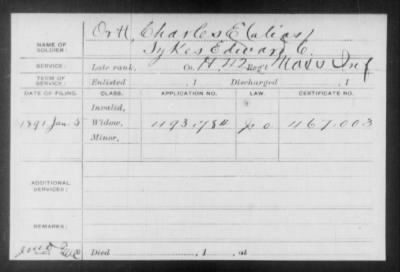 Orth, Charles E (alias)
NAME OF SOLDIER: Sykes Edward C.
SERVICE: Late rank, Co. H, Reg't Mass Inf
TERM OF SERVICE: Enlisted , 1 Discharged , 1
DATE OF FILING. CLASS. APPLICATION NO. LAW. CERTIFICATE NO.
Invalid,
1891 Jan. 5 Widow, 467.003
Minor,
ADDITIONAL SERVICES:
REMARKS:
Died , 1 , at